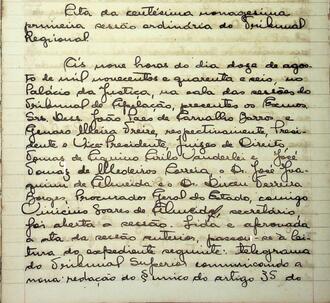 Ata da centésima nonagesima
primeira sessão ordinária do Tribunal
Regional
Ás nove horas do dia doze de agos-
to de mil novecentos e quarenta e seis, no
Palácio da Justiça, na sala das sessões do
Tribunal de Apelação, presentes os Exmos
Srs. Dess. João Paes de Carvalho Barros e
Genaro Freire, respectivamente, Presi-
dente e Vice Presidente, Juizes de Direito
Tomaz de Aquino Cirilo Vanderlei e José
Tomaz de Medeiros Correia, o D. José Joa-
quim de Almeida e o D. Dirceu Ferreira
Borges, Procurador Geral do Estado, comigo
Vinicius Soares de Almeida, secretário
foi aberta a sessão. Lida e aprovada
a ata da sessão anterior, passou-se á lei-
tura do expediente seguinte: telegrama
do Tribunal Superior comunicando a
nova redação do § unico do artigo 35 do